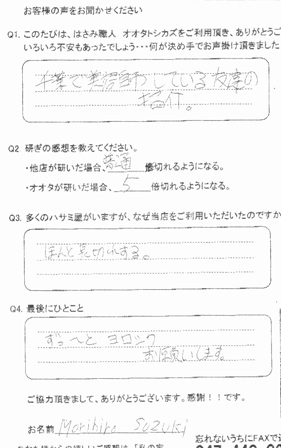 お客様の声をお聞かせください
Q1. このたびは、はさみ職人 オオタトシカズをご利用頂き、ありがとうご
いろいろ不安もあったでしょう・・・何が決め手でお声掛け頂きました
千葉で美容師している友達の
紹介。
Q2. 研ぎの感想を教えてください。
・他店が研いだ場合、普通 倍切れるようになる。
・オオタが研いだ場合、5 倍切れるようになる。
Q3. 多くのハサミ屋がいますが、なぜ当店をご利用いただいたのですか
ほんと長切れする。
Q4. 最後にひとこと
ず〜っと ヨロシク
お願いします。
ご協力頂きまして、ありがとうございます。感謝！！です。
お名前 Morihiro Suzuki
忘れないうちにFAXで